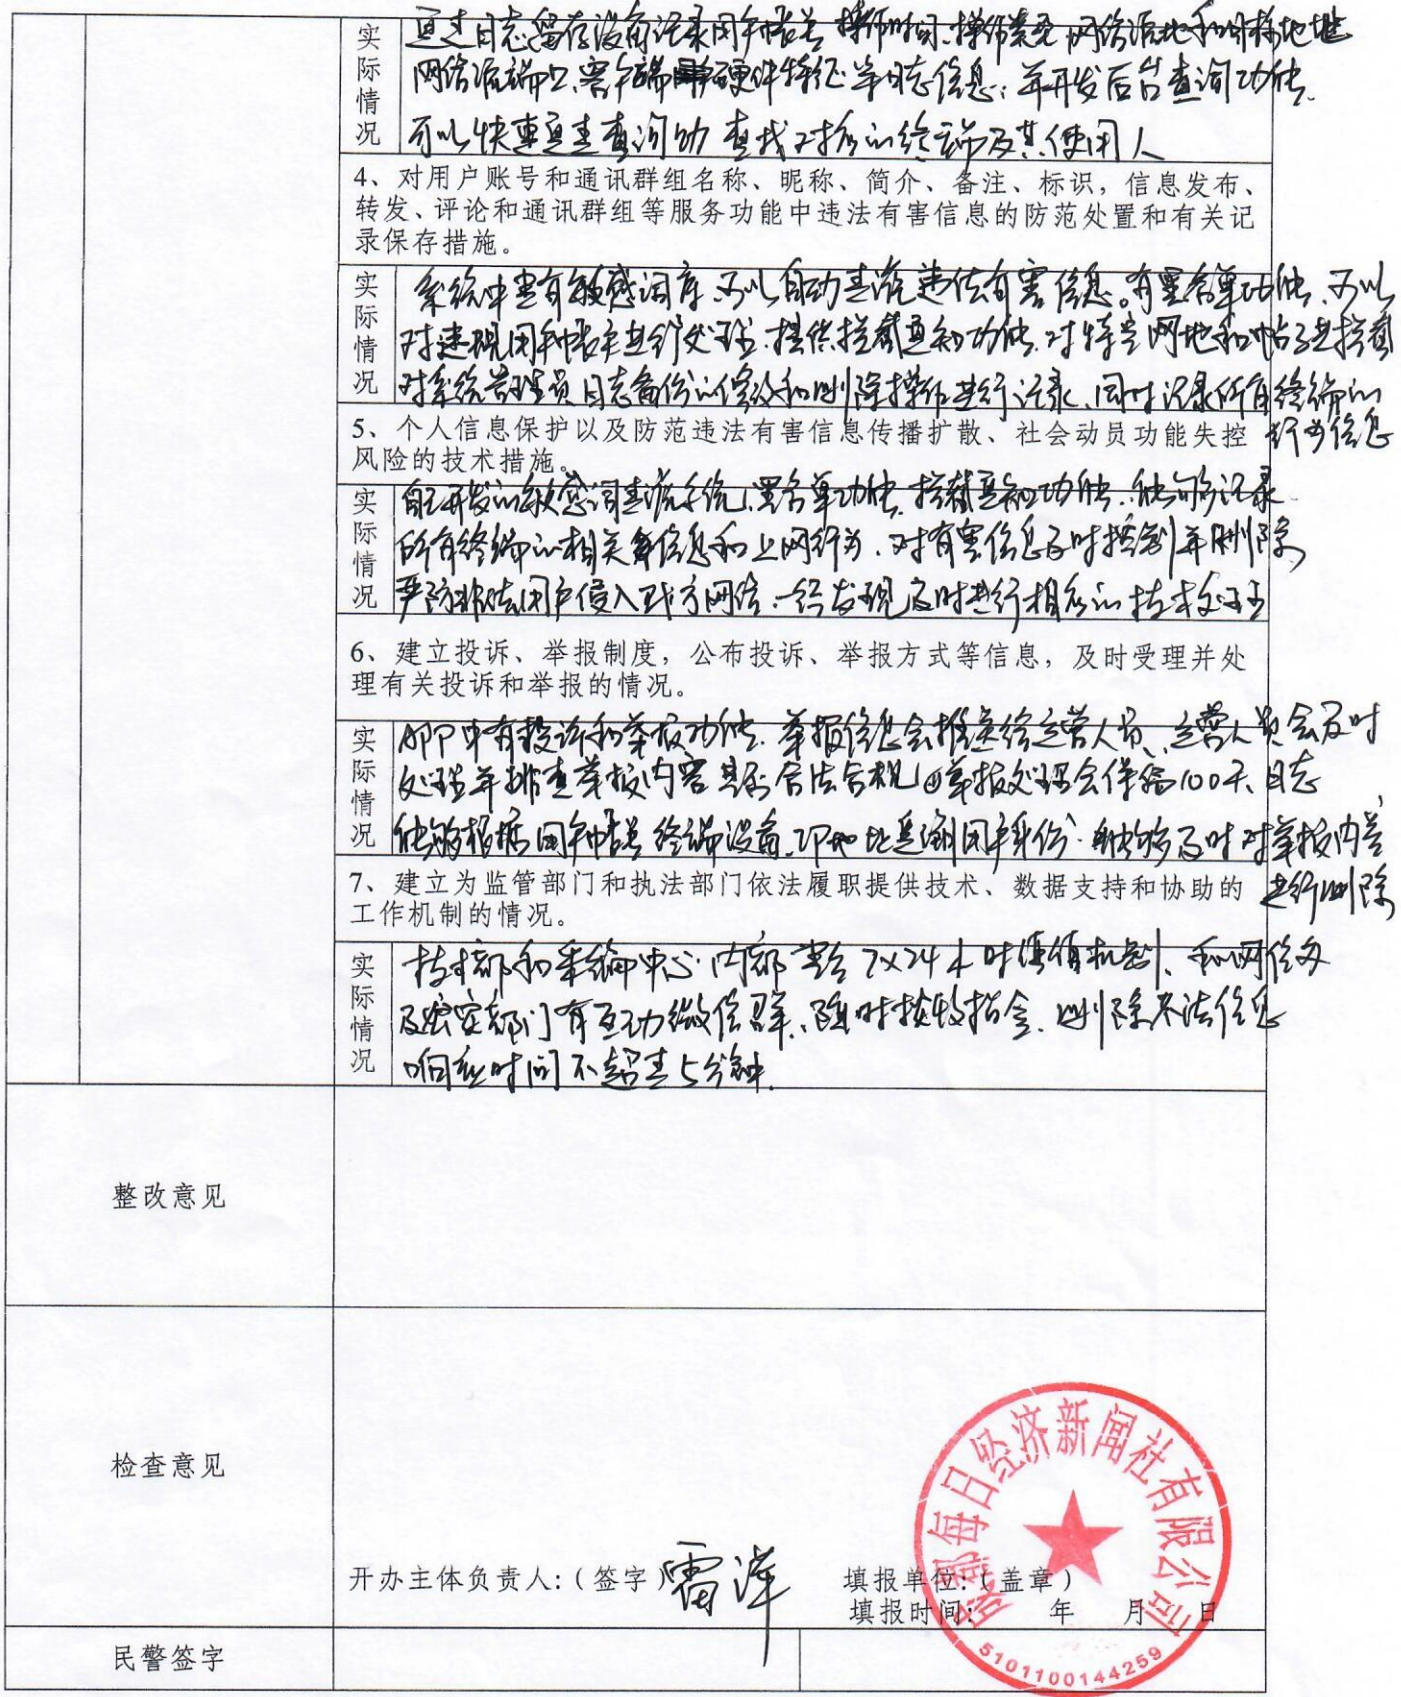 实际情况
通过日志留存设备记录用户帐号 操作时间、操作类型 网络源地和目标地址
网络源端口、客户端硬件特征等日志信息;并开发后台查询功能.
可以快速通过查询功 查找对应的终端及其使用人
4、对用户账号和通讯群组名称、昵称、简介、备注、标识,信息发布、
转发、评论和通讯群组等服务功能中违法有害信息的防范处置和有关记
录保存措施。
实际情况
系统中里有敏感词库、可以自动过滤违法有害信息。有黑名单功能、可以
对违规用户帐户进行处理.提供拦截通知功能.对特定网地和帖子进拦截
对系统管理员日志备份的修改和删除操作进行记录、同时记录所有终端的
行为信息
5、个人信息保护以及防范违法有害信息传播扩散、社会动员功能失控
风险的技术措施。
实际情况
自主开发的敏感词过滤系统、黑名单功能.拦截通知功能.能够记录
所有终端的相关信息和上网行为、对有害信息及时控制并删除
严防非法用户侵入我方网络.一经发现及时进行相应的技术处理
6、建立投诉、举报制度,公布投诉、举报方式等信息,及时受理并处
理有关投诉和举报的情况。
实际情况
APP中有投诉和举报功能.举报信息会推送给运营人员、运营人员会及时
处理并排查举报内容是否合法合规 举报处理会保留100天、日志
能够根据用户帐号 终端设备、IP地址追溯用户身份.能够及时对举报内容
进行删除
7、建立为监管部门和执法部门依法履职提供技术、数据支持和协助的
工作机制的情况。
实际情况
技术部和采编中心内部 7×24小时值机制、和网信办
及公安部门有互动微信群、随时接收指令.删除不法信息
响应时间不超过5分钟.
整改意见
检查意见
开办主体负责人:(签字)雷萍
填报单位:(盖章)
填报时间: 年 月 日
成都每日经济新闻社有限公司
5101100144259
民警签字